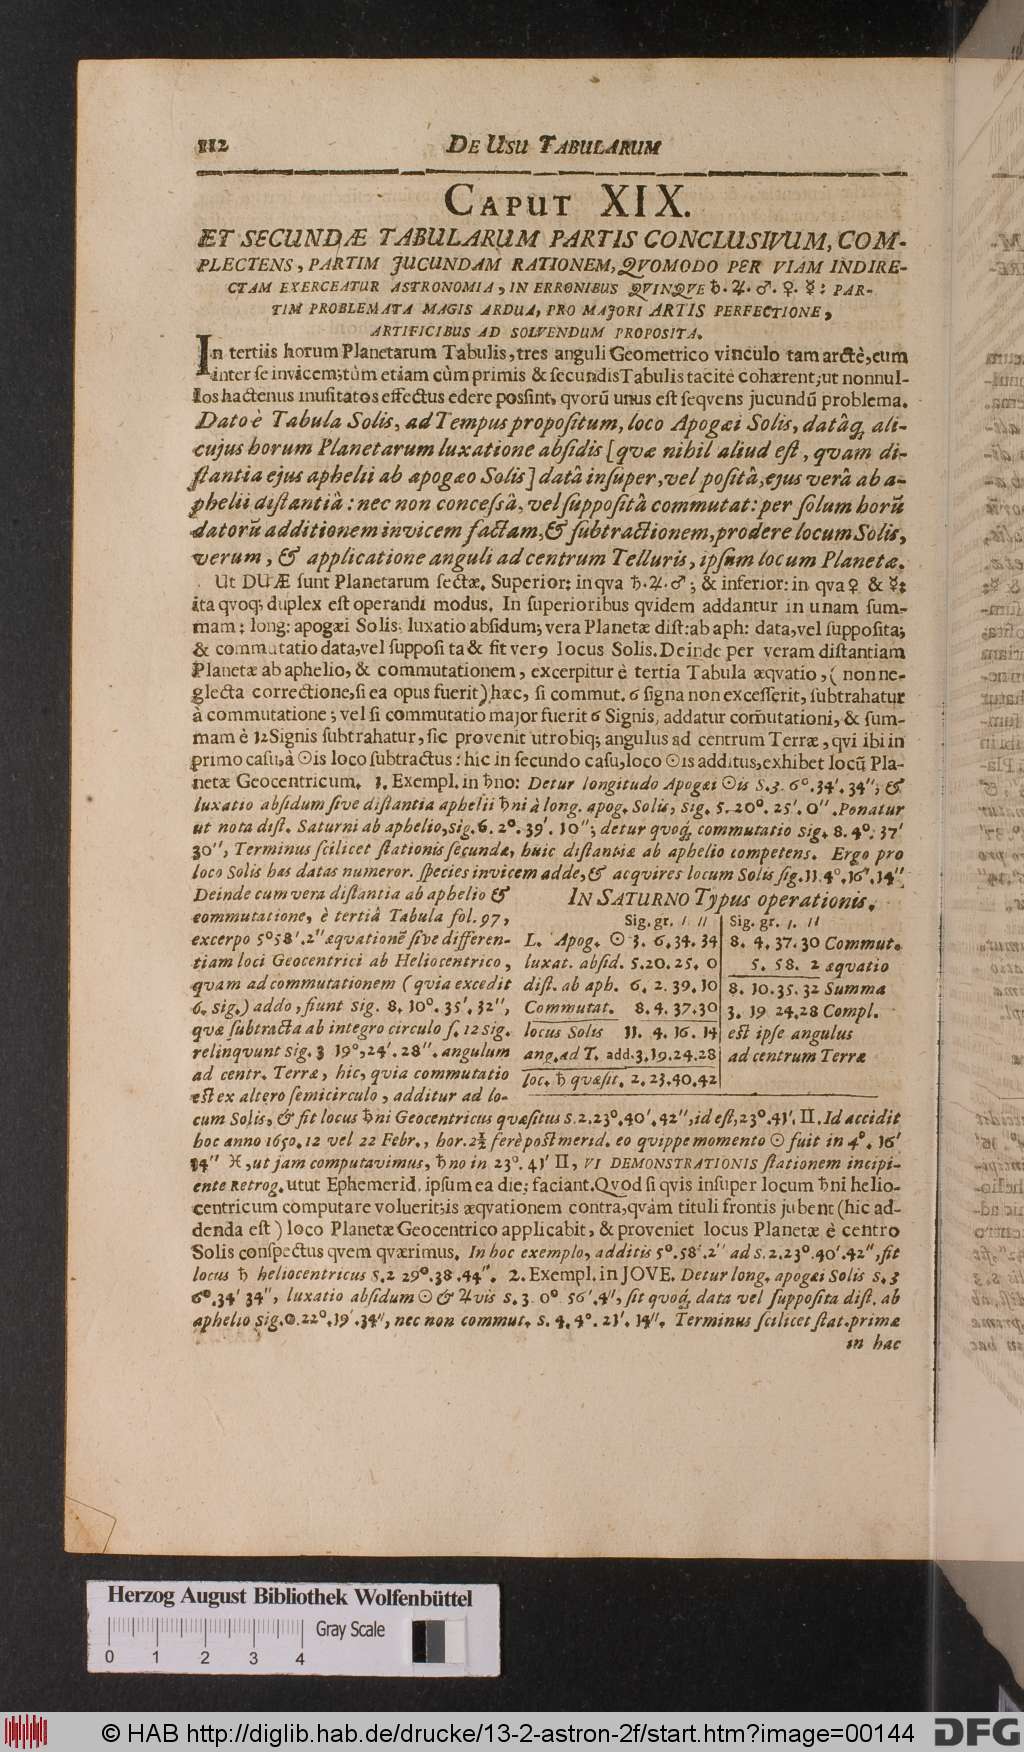 112 DE USU TABULARUM
CAPUT XIX.
ET SECUNDÆ TABULARUM PARTIS CONCLUSIVUM, COM-
PLECTENS, PARTIM JUCUNDAM RATIONEM, QVOMODO PER VIAM INDIRE-
CTAM EXERCEATUR ASTRONOMIA, IN ERRONIBUS QVINQVE ♄. ♃. ♂. ♀. ☿: PAR-
TIM PROBLEMATA MAGIS ARDUA, PRO MAJORI ARTIS PERFECTIONE,
ARTIFICIBUS AD SOLVENDUM PROPOSITA.
In tertiis horum Planetarum Tabulis, tres anguli Geometrico vinculo tam arctè, cum
inter se invicem; tùm etiam cùm primis & secundis Tabulis tacitè cohærent; ut nonnul-
los hactenus inusitatos effectus edere possint, qvorũ unus est seqvens jucundũ problema.
Dato è Tabula Solis, ad Tempus propositum, loco Apogæi Solis, datâq; ali-
cujus horum Planetarum luxatione absidis [quæ nihil aliud est, quam di-
stantia ejus aphelii ab apogæo Solis] datâ insuper, vel positâ, ejus verâ ab a-
phelii distantiâ: nec non concessâ, vel suppositâ commutat: per solum horũ
datorũ additionem invicem factam, & subtractionem, prodere locum Solis,
verum, & applicatione anguli ad centrum Telluris, ipsum locum Planetæ.
Ut DUÆ sunt Planetarum sectæ, Superior: in qva ♄. ♃. ♂; & inferior: in qva ♀ & ☿:
ita qvoq; duplex est operandi modus. In superioribus qvidem addantur in unam sum-
mam: long: apogæi Solis, luxatio absidum; vera Planetæ dist: ab aph: data, vel supposita;
& commutatio data, vel supposita & fit ver9 locus Solis. Deinde per veram distantiam
Planetæ ab aphelio, & commutationem, excerpitur è tertia Tabula æqvatio, (non ne-
glecta correctione, si ea opus fuerit) hæc, si commut. 6 signa non excesserit, subtrahatur
à commutatione; vel si commutatio major fuerit 6 Signis, addatur com̃utationi, & sum-
mam è 12 Signis subtrahatur, sic provenit utrobiq; angulus ad centrum Terræ, qvi ibi in
primo casu, à ☉is loco subtractus: hic in secundo casu, loco ☉is additus, exhibet locũ Pla-
netæ Geocentricum. 1. Exempl. in ♄no: Detur longitudo Apogæi ☉is S. 3. 6°. 34'. 34"; &
luxatio absidum sive distantia aphelii ♄ni à long. apog. Solis, sig. 5. 20°. 25'. 0". Ponatur
ut nota dist. Saturni ab aphelio, sig. 6. 2°. 39'. 10"; detur quoq; commutatio sig. 8. 4°. 37'
30", Terminus scilicet stationis secundæ, huic distantiæ ab aphelio competens. Ergo pro
loco Solis has datas numeror. species invicem adde, & acquires locum Solis sig. 11. 4°. 16'. 14".
Deinde cum vera distantia ab aphelio &
commutatione, è tertiâ Tabula fol. 97,
excerpo 5° 58'. 2" æquationẽ sive differen-
tiam loci Geocentrici ab Heliocentrico,
quam ad commutationem (quia excedit
6. sig.) addo, fiunt sig. 8. 10°. 35'. 32",
quæ subtracta ab integro circulo s. 12 sig.
relinqvunt sig. 3 19°, 24'. 28". angulum
ad centr. Terræ, hic, quia commutatio
est ex altero semicirculo, additur ad lo-
IN SATURNO Typus operationis.
Sig. gr. I. II | Sig. gr. I. II
L. Apog. ☉ 3. 6. 34. 34 | 8. 4. 37. 30 Commut.
luxat. absid. 5. 20. 25. 0 | 5. 58. 2 æquatio
dist. ab aph. 6. 2. 39. 10 | 8. 10. 35. 32 Summa
Commutat. 8. 4. 37. 30 | 3. 19 24. 28 Compl.
locus Solis 11. 4. 16. 14 | est ipse angulus
ang. ad T. add. 3. 19. 24. 28 | ad centrum Terræ
loc. ♄ quæsit. 2. 23. 40. 42
cum Solis, & fit locus ♄ni Geocentricus quæsitus S. 2. 23°. 40'. 42", id est, 23°. 41'. ♊. Id accidit
hoc anno 1650. 12 vel 22 Febr., hor. 2½ ferè post merid. eo quippe momento ☉ fuit in 4°. 16'
14" ♓, ut jam computavimus, ♄no in 23°. 41' ♊, VI DEMONSTRATIONIS stationem incipi-
ente Retrog. utut Ephemerid. ipsum ea die; faciant. Qvod si qvis insuper locum ♄ni helio-
centricum computare voluerit; is æqvationem contra, qvàm tituli frontis jubent (hic ad-
denda est) loco Planetæ Geocentrico applicabit, & proveniet locus Planetæ è centro
Solis conspectus qvem qværimus. In hoc exemplo, additis 5°. 58'. 2" ad s. 2. 23°. 40'. 42", fit
locus ♄ heliocentricus S. 2 29°. 38'. 44". 2. Exempl. in JOVE. Detur long. apogæi Solis S. 3
6°. 34' 34", luxatio absidum ☉ & ♃vis S. 3. 0°. 56'. 4", sit quoq; data vel supposita dist. ab
aphelio sig. 0. 22°. 19'. 34", nec non commut. S. 4. 4°. 21'. 14". Terminus scilicet stat. primæ
in hac
Herzog August Bibliothek Wolfenbüttel
0 1 2 3 4 Gray Scale
© HAB http://diglib.hab.de/drucke/13-2-astron-2f/start.htm?image=00144 DFG